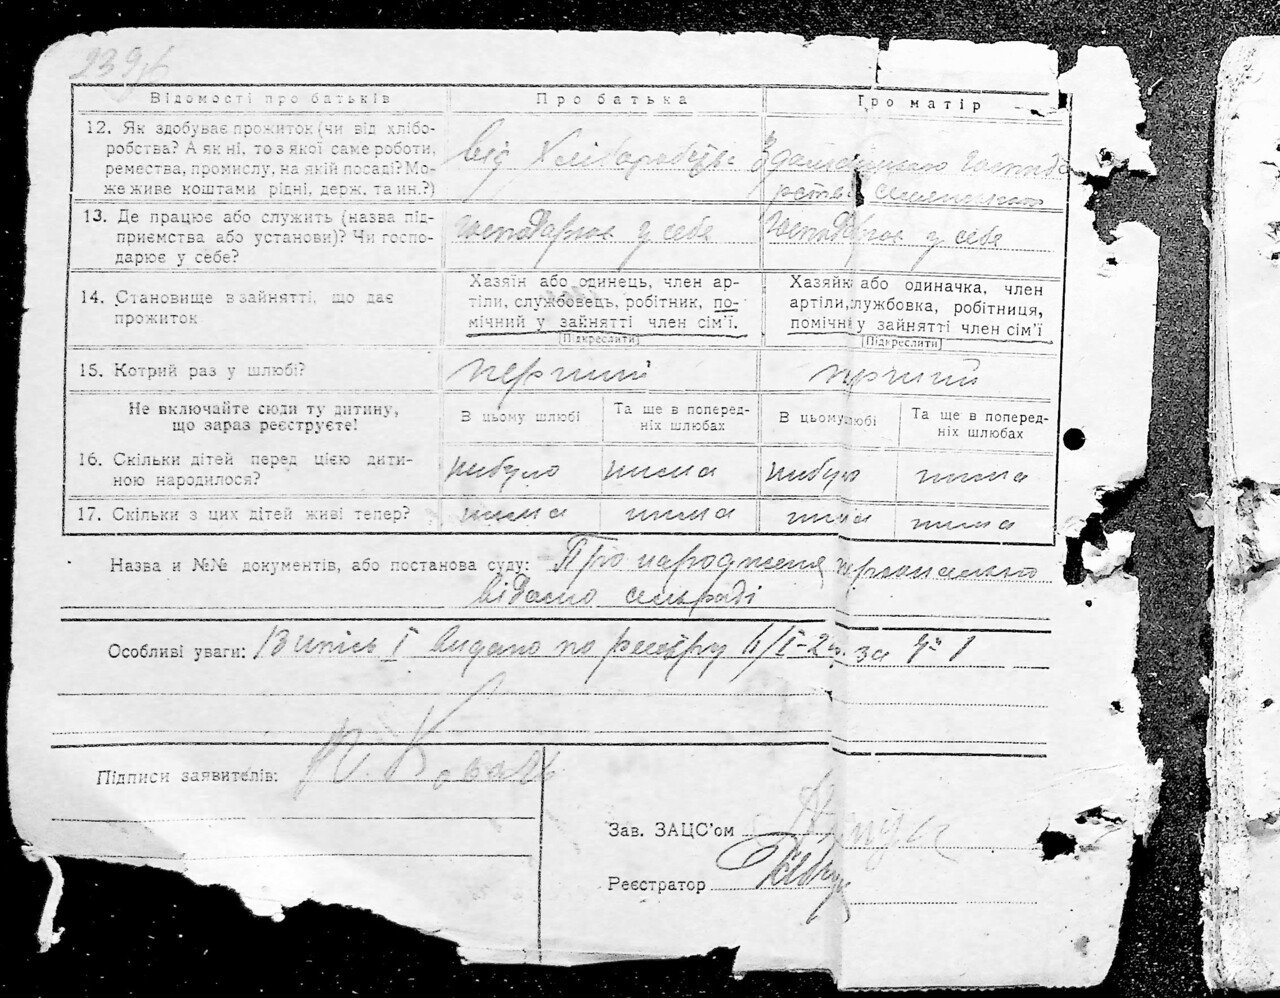 239
Відомості про батьків Про батька Про матір
12. Як здобуває прожиток (чи від хлібо-
робства? А як ні, то з якої саме роботи,
ремества, промислу, на якій посаді? Мо-
же живе коштами рідні, держ. та ин.?)
від Хліборобства
13. Де працює або служить (назва під-
приємства або установи)? Чи госпо-
дарює у себе?
господарює у себе господарює у себе
14. Становище в зайнятті, що дає
прожиток
Хазяїн або одинець, член ар-
тіли, службовець, робітник, по-
мічний у зайнятті член сім'ї.
(Підкреслити)
Хазяйка або одиначка, член
артіли, службовка, робітниця,
помічн у зайнятті член сім'ї
(Підкреслити)
15. Котрий раз у шлюбі? перший перший
Не включайте сюди ту дитину,
що зараз реєструєте!
В цьому шлюбі Та ще в поперед-
ніх шлюбах В цьому шлюбі Та ще в поперед-
ніх шлюбах
16. Скільки дітей перед цією дити-
ною народилося?
небуло нима небуло нима
17. Скільки з цих дітей живі тепер? нима нима нима нима
Назва и №№ документів, або постанова суду: Про народження
відомо сельраді
Особливі уваги: Випись І видано по реєстру за № 1
Підписи заявителів: Коваль
Зав. ЗАЦС'ом
Реєстратор